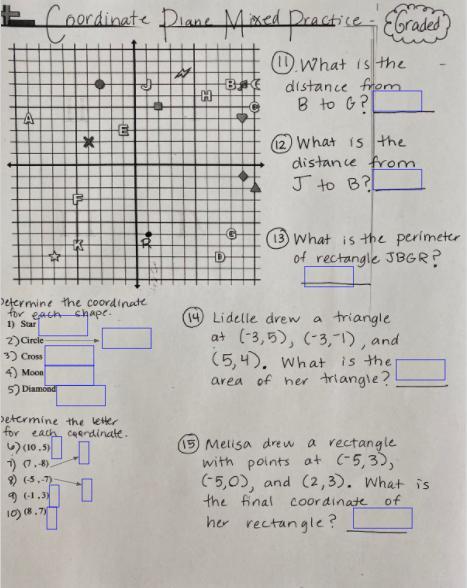 Coordinate Plane Mixed Practice -
Graded
J
B
C
H
C
A
E
F
G
K
R
D
11 What is the
distance from
B to G?
12 What is the
distance from
J to B?
13 What is the perimeter
of rectangle JBGR?
Determine the coordinate
for each shape.
1) Star
2) Circle
3) Cross
4) Moon
5) Diamond
Determine the letter
for each coordinate.
6) (10,5)
7) (7,-8)
8) (-5,-7)
9) (-1,3)
10) (8,7)
14 Lidelle drew a triangle
at (-3,5), (-3,-1), and
(5,4). What is the
area of her triangle?
15 Melisa drew a rectangle
with points at (-5,3),
(-5,0), and (2,3). What is
the final coordinate of
her rectangle?